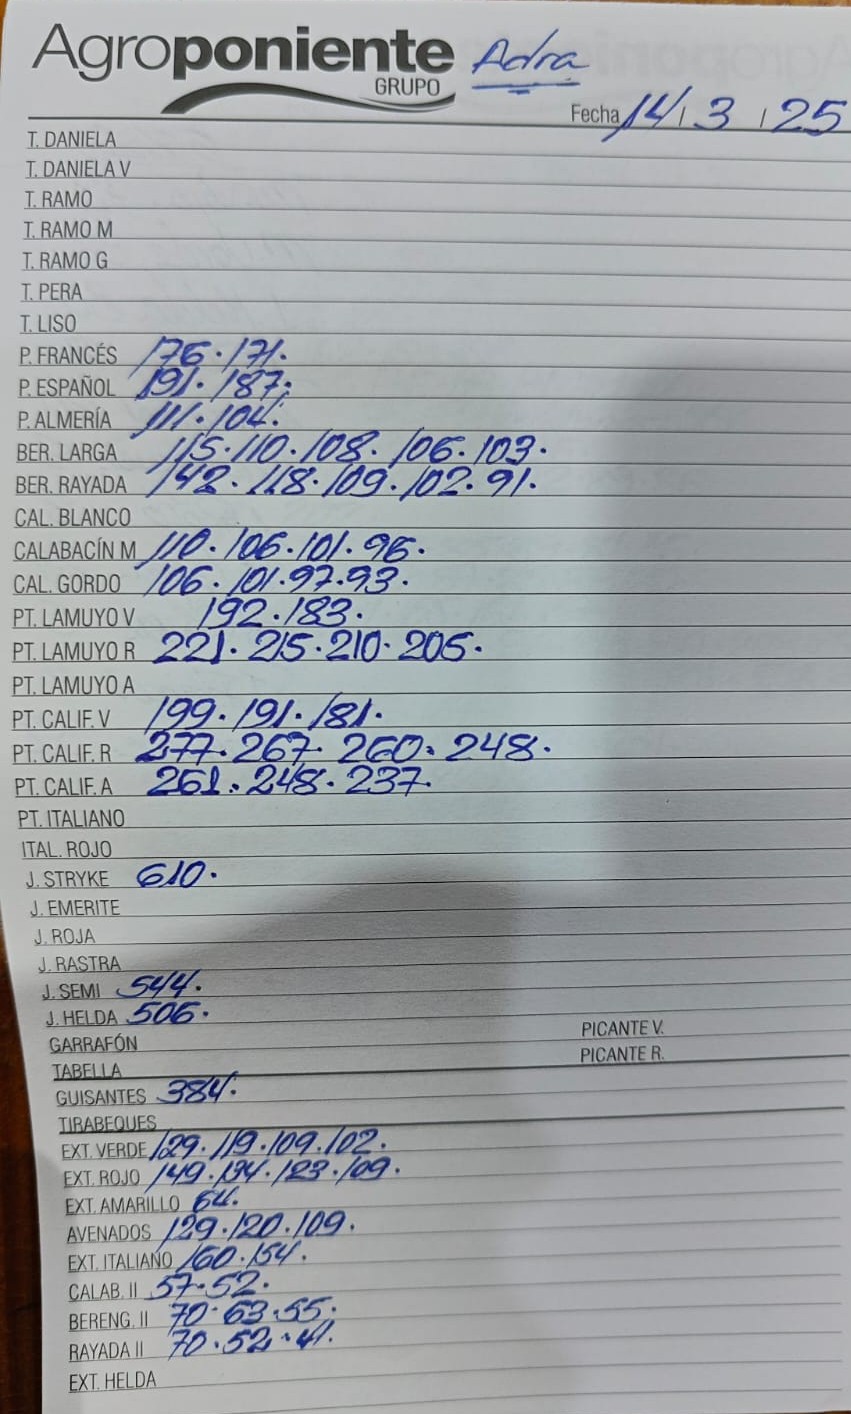 Agroponiente Adra
GRUPO
Fecha 14 / 3 / 25
T. DANIELA
T. DANIELA V
T. RAMO
T. RAMO M
T. RAMO G
T. PERA
T. LISO
P. FRANCÉS 176. 171.
P. ESPAÑOL 191. 187.
P. ALMERÍA 111. 104.
BER. LARGA 115. 110. 108. 106. 103.
BER. RAYADA 142. 118. 109. 102. 91.
CAL. BLANCO
CALABACÍN M 110. 106. 101. 96.
CAL. GORDO 106. 101. 97. 93.
PT. LAMUYO V 192. 183.
PT. LAMUYO R 221. 215. 210. 205.
PT. LAMUYO A
PT. CALIF. V 199. 191. 181.
PT. CALIF. R 277. 267. 260. 248.
PT. CALIF. A 261. 248. 237.
PT. ITALIANO
ITAL. ROJO
J. STRYKE 610.
J. EMERITE
J. ROJA
J. RASTRA
J. SEMI 544.
J. HELDA 506.
PICANTE V.
GARRAFÓN
PICANTE R.
TABELLA
GUISANTES 384.
TIRABEQUES
EXT. VERDE 129. 119. 109. 102.
EXT. ROJO 149. 134. 123. 109.
EXT. AMARILLO 64.
AVENADOS 129. 120. 109.
EXT. ITALIANO 160. 154.
CALAB. II 57. 52.
BERENG. II 70. 63. 55.
RAYADA II 70. 52. 41.
EXT. HELDA